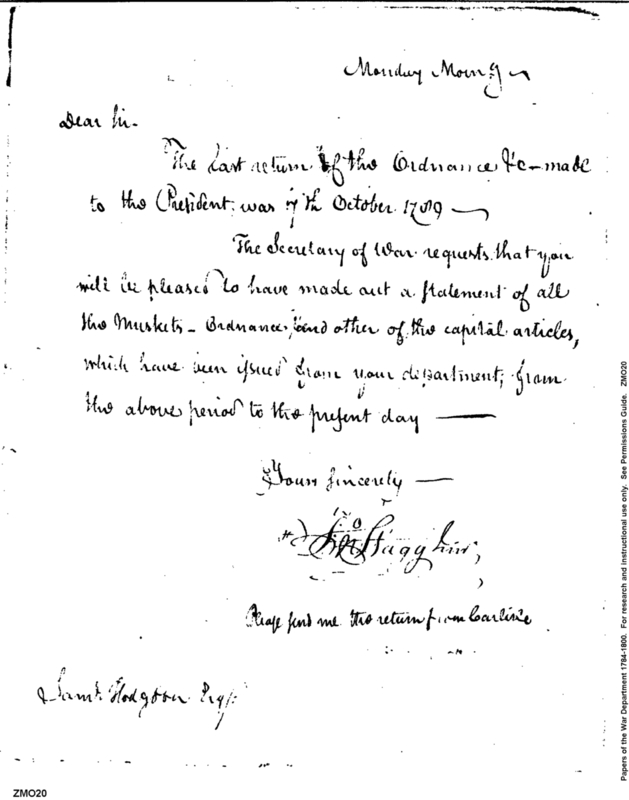 Monday Morn'g
Dear Sir.
The Last return of the Ordnance &c - made
to the President, was 7th October. 1789
The Secretary of War requests that you
will be pleased to have made out a statement of all
the Muskets - Ordnance, and other of the capital articles,
which have been issued from your department, from
the above period to the present day
Yours sincerely
Jno Stagg Junr,
Please send me the return from Carlisle
Saml. Hodgdon Esqr.
ZMO20
Papers of the War Department 1784-1800. For research and instructional use only. See Permissions Guide. ZMO20